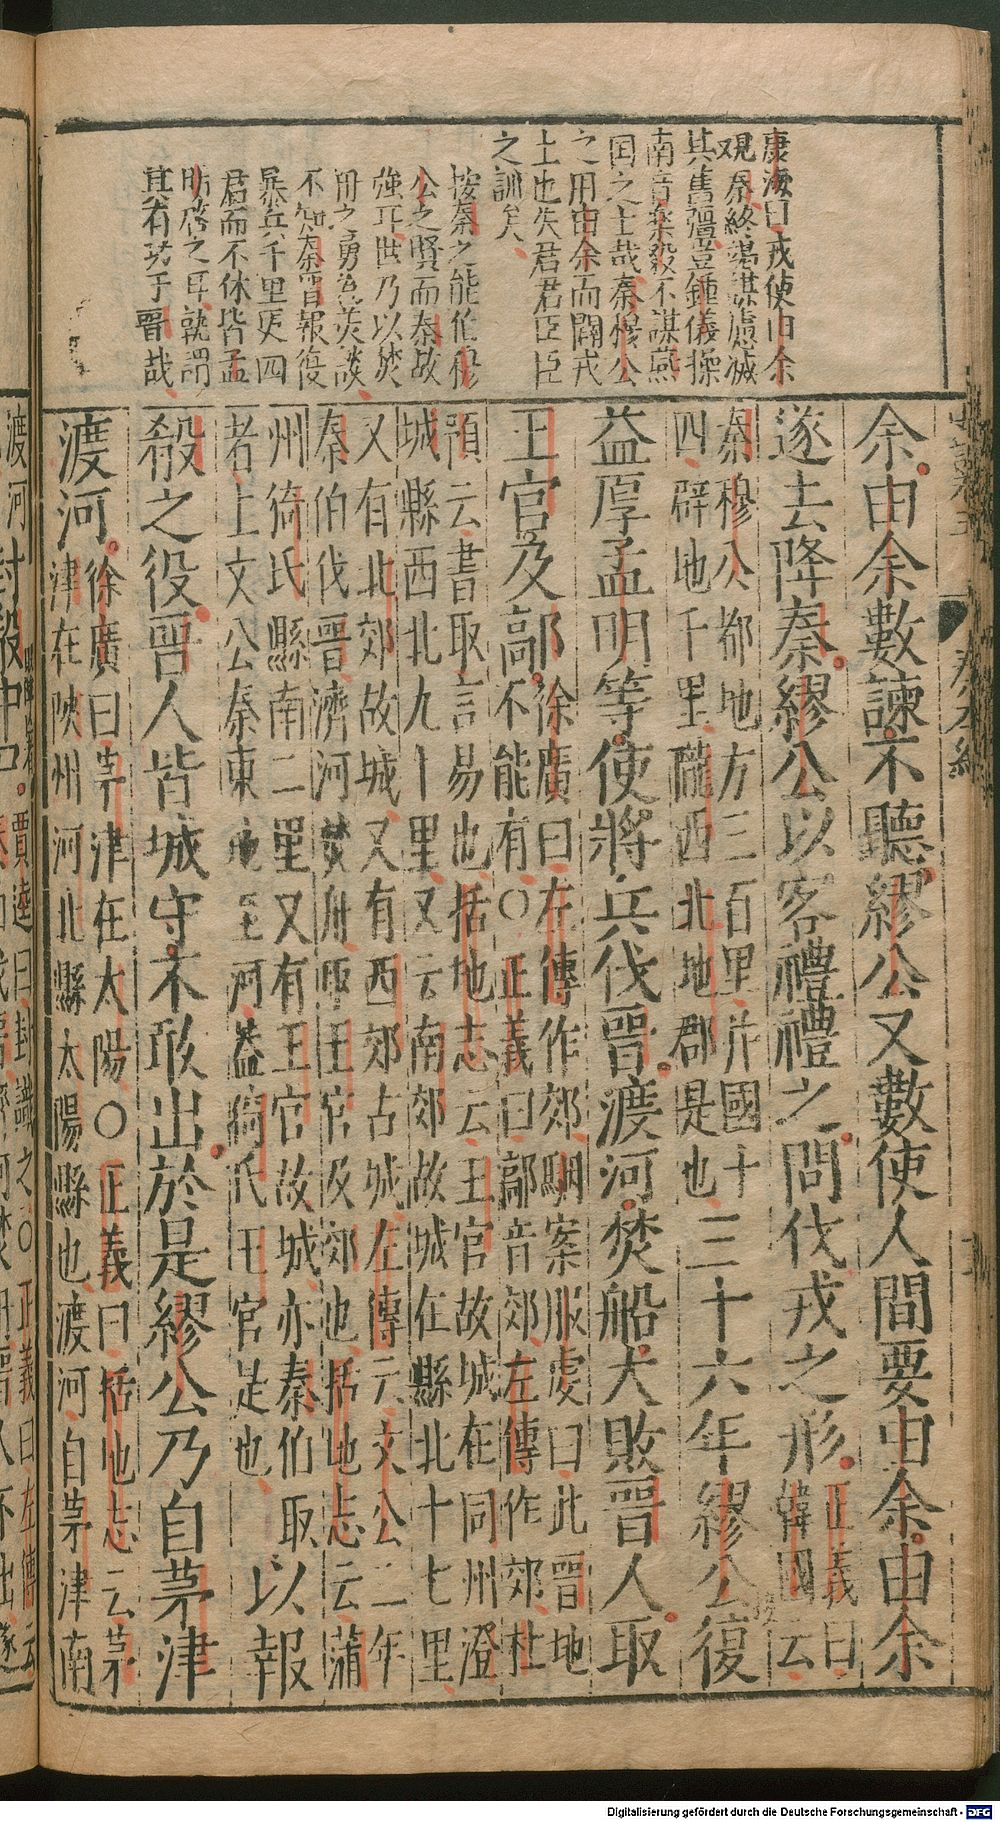 康海曰戎使由余
觀秦終竭謀慮滅
其舊疆豈鍾儀操
南音樂毅不謀燕
国之士哉秦穆公
之用由余而闢戎
土也失君君臣臣
之訓矣
按秦之能伯穆
公之賢而秦故
強耳世乃以焚
舟之勇為美談
不知秦晉報復
暴兵千里更四
君而不休皆孟
明啓之耳孰謂
其有功于晉哉
余由余數諫不聽繆公又數使人間要由余由余
遂去降秦繆公以客禮禮之問伐戎之形正義曰
韓國云
秦穆公都地方三百里并國十
四辟地千里隴西北地郡是也三十六年繆公復
益厚孟明等使將兵伐晉渡河焚船大敗晉人取
王官及鄗徐廣曰左傳作郊駰案服虔曰此晉地
不能有○正義曰鄗音郊左傳作郊杜
預云書取言易也括地志云王官故城在同州澄
城縣西北九十里又云南郊故城在縣北十七里
又有北郊故城又有西郊古城左傳云文公二年
秦伯伐晉濟河焚舟取王官及郊也括地志云蒲
州猗氏縣南二里又有王官故城亦秦伯取
者上文公秦東 至河蓋猗氏王官是也以報
殽之役晉人皆城守不敢出於是繆公乃自茅津
渡河徐廣曰茅津在太陽○正義曰括地志云茅
津在陝州河北縣太陽縣也渡河自茅津南
渡河封殽中尸賈逵曰封識之○正義曰左傳云
Digitalisierung gefördert durch die Deutsche Forschungsgemeinschaft - DFG